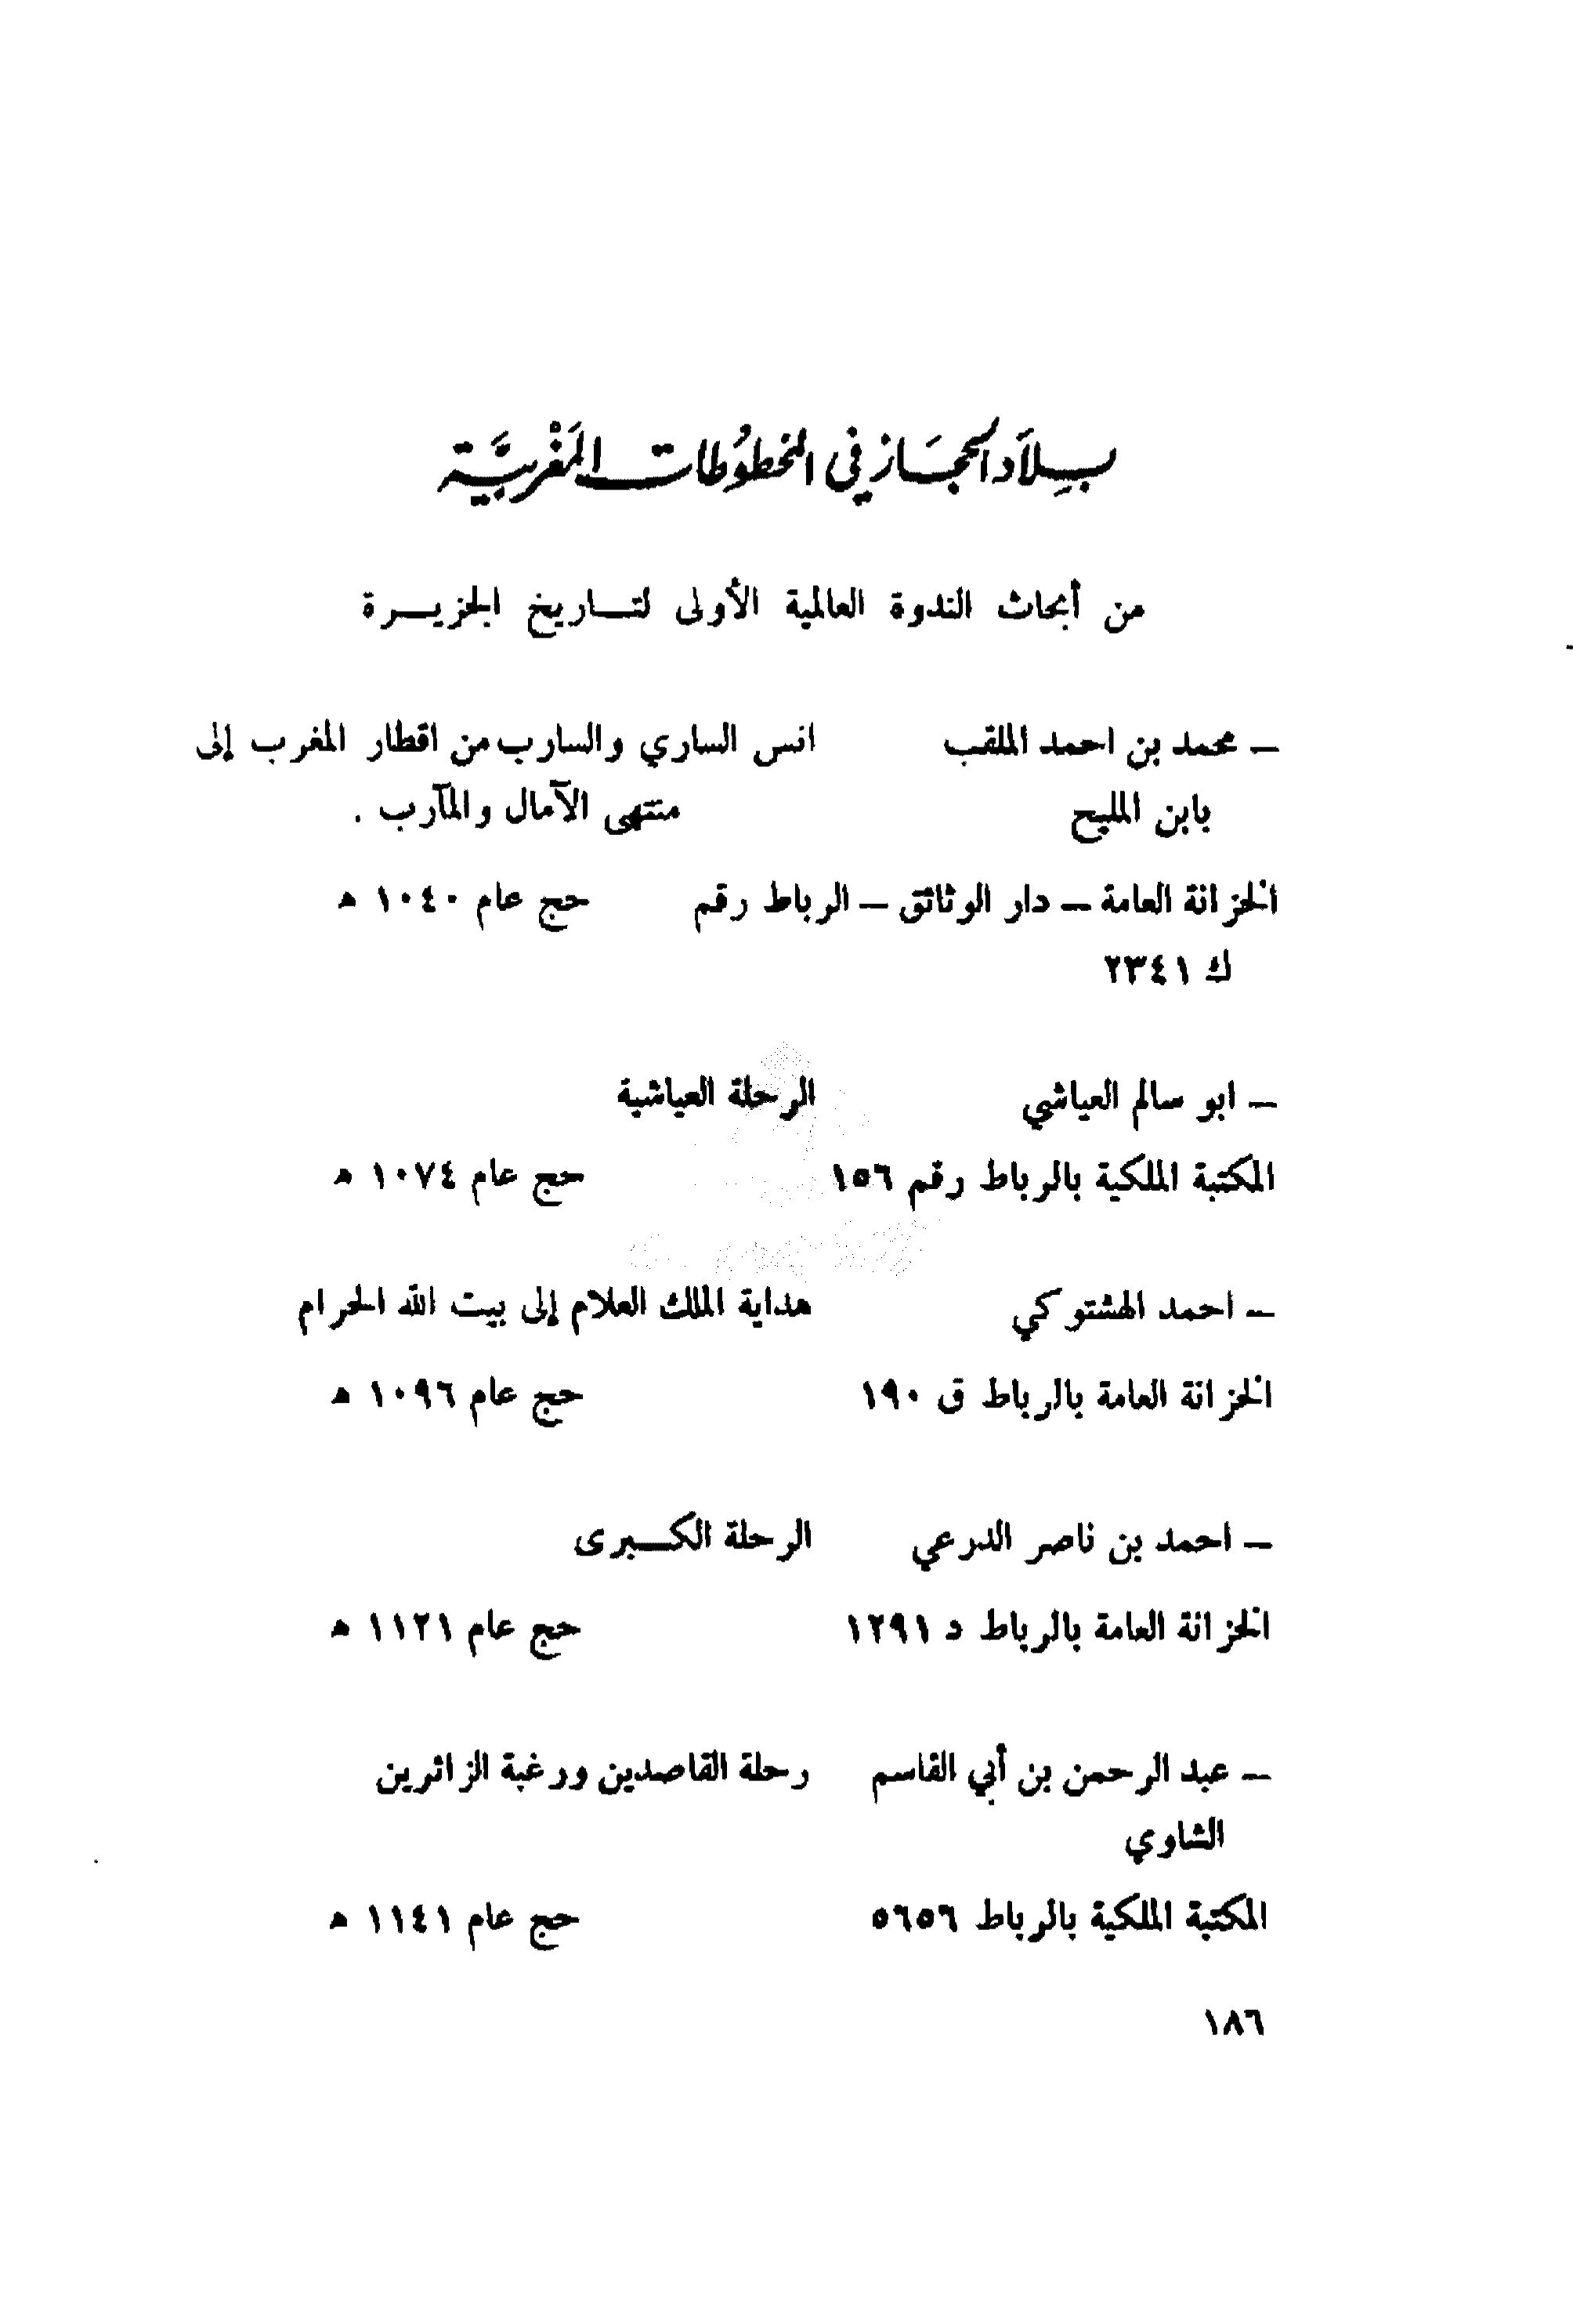 بِلَاد الحجَاز في المخطوُطات المَغْربيَّة
من أبحاث الندوة العالمية الأولى لتـاريخ الجزيـرة
– محمد بن احمد الملقب    انس الساري والسارب من اقطار المغرب إلى
بابن المليح    منتهى الآمال والمآرب .
الخزانة العامة – دار الوثائق – الرباط رقم    حج عام ١٠٤٠ هـ
ك ٢٣٤١
– ابو سالم العياشي    الرحلة العياشية
المكتبة الملكية بالرباط رقم ١٥٦    حج عام ١٠٧٤ هـ
– احمد الهشتوكي    هداية الملك العلام إلى بيت الله الحرام
الخزانة العامة بالرباط ق ١٩٠    حج عام ١٠٩٦ هـ
– احمد بن ناصر الدرعي    الرحلة الكـبرى
الخزانة العامة بالرباط د ١٢٩١    حج عام ١١٢١ هـ
– عبد الرحمن بن أبي القاسم    رحلة القاصدين ورغبة الزائرين
الشاوي
المكتبة الملكية بالرباط ٥٦٥٦    حج عام ١١٤١ هـ
١٨٦